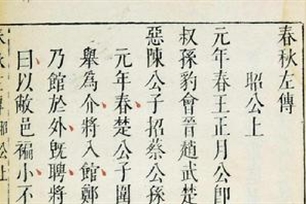 春秋左傳
昭公上
元年春王正月公卽
叔孫豹會晉趙武楚
惡陳公子招蔡公孫
元年春楚公子圍
舉為介將入館鄭
乃館於外旣聘將
曰以敝邑褊小不